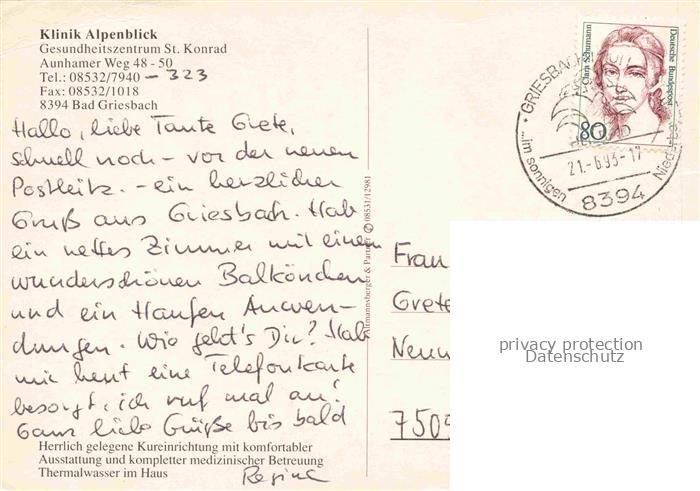 Klinik Alpenblick
Gesundheitszentrum St. Konrad
Aunhamer Weg 48 - 50
Tel.: 08532/7940 - 323
Fax: 08532/1018
8394 Bad Griesbach
Hallo, liebe Tante Grete,
schnell noch - vor der neuen
Postleitz. - ein herzlicher
Gruß aus Griesbach. Hab
ein nettes Zimmer mit einem
wunderschönen Balkönchen
und ein Haufen Anwen-
dungen. Wie geht's Dir? Hab
mir heut eine Telefonkarte
besorgt, ich ruf mal an!
Ganz liebe Grüße bis bald
Regina
Herrlich gelegene Kureinrichtung mit komfortabler
Ausstattung und kompletter medizinischer Betreuung
Thermalwasser im Haus
Altmannsberger & Partner © 08531/12981
Clara Schumann
Deutsche Bundespost
80
GRIESBACH
21.-6.93-17
...im sonnigen
8394
Frau
Grete
7509
privacy protection
Datenschutz